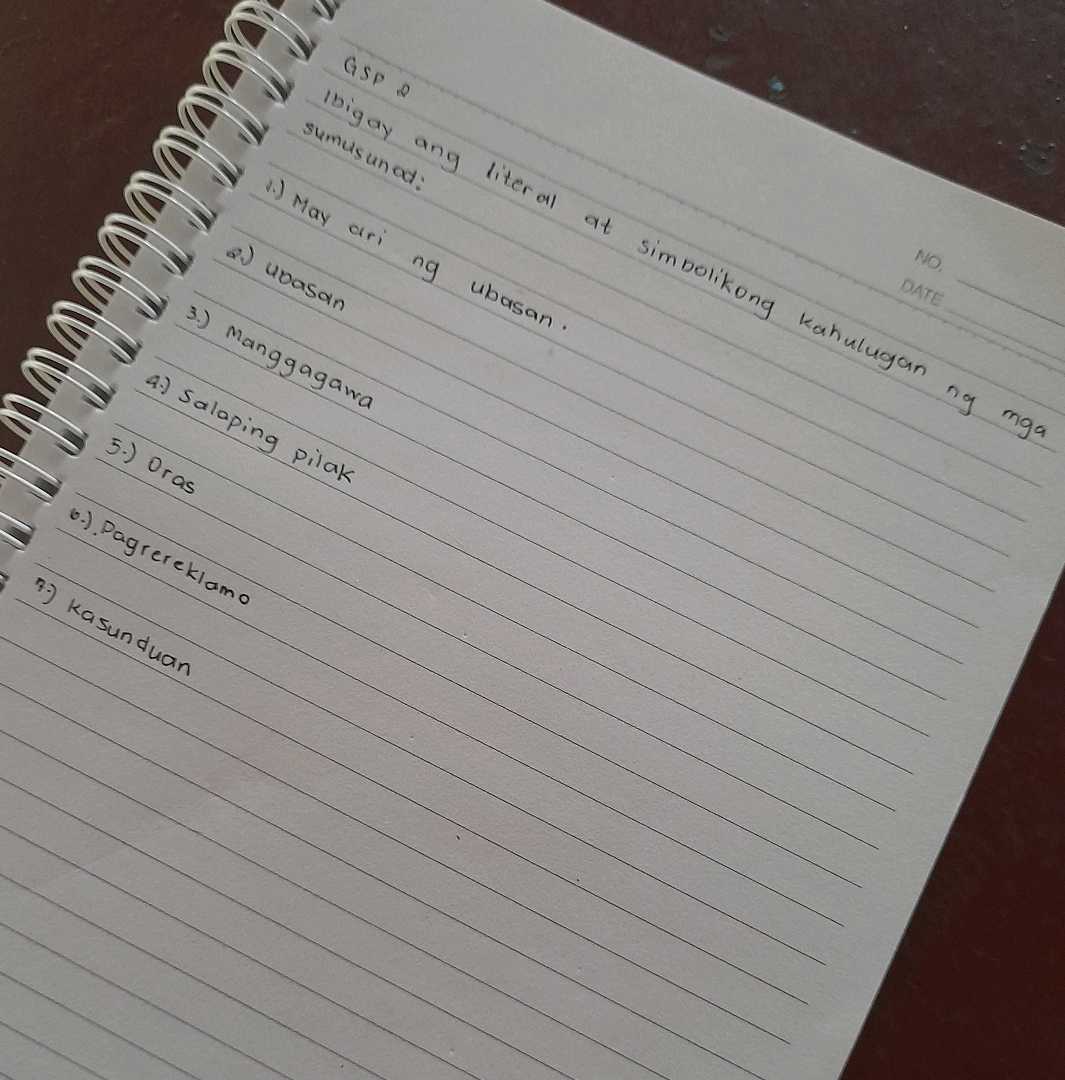 GSP 2
Ibigay ang literal at simbolikong kahulugan ng mga
sumusunod:
NO.
DATE
1.) May ari ng ubasan.
2.) ubasan
3.) Manggagawa
4.) Salaping pilak
5.) Oras
6.) Pagrereklamo
7.) Kasunduan